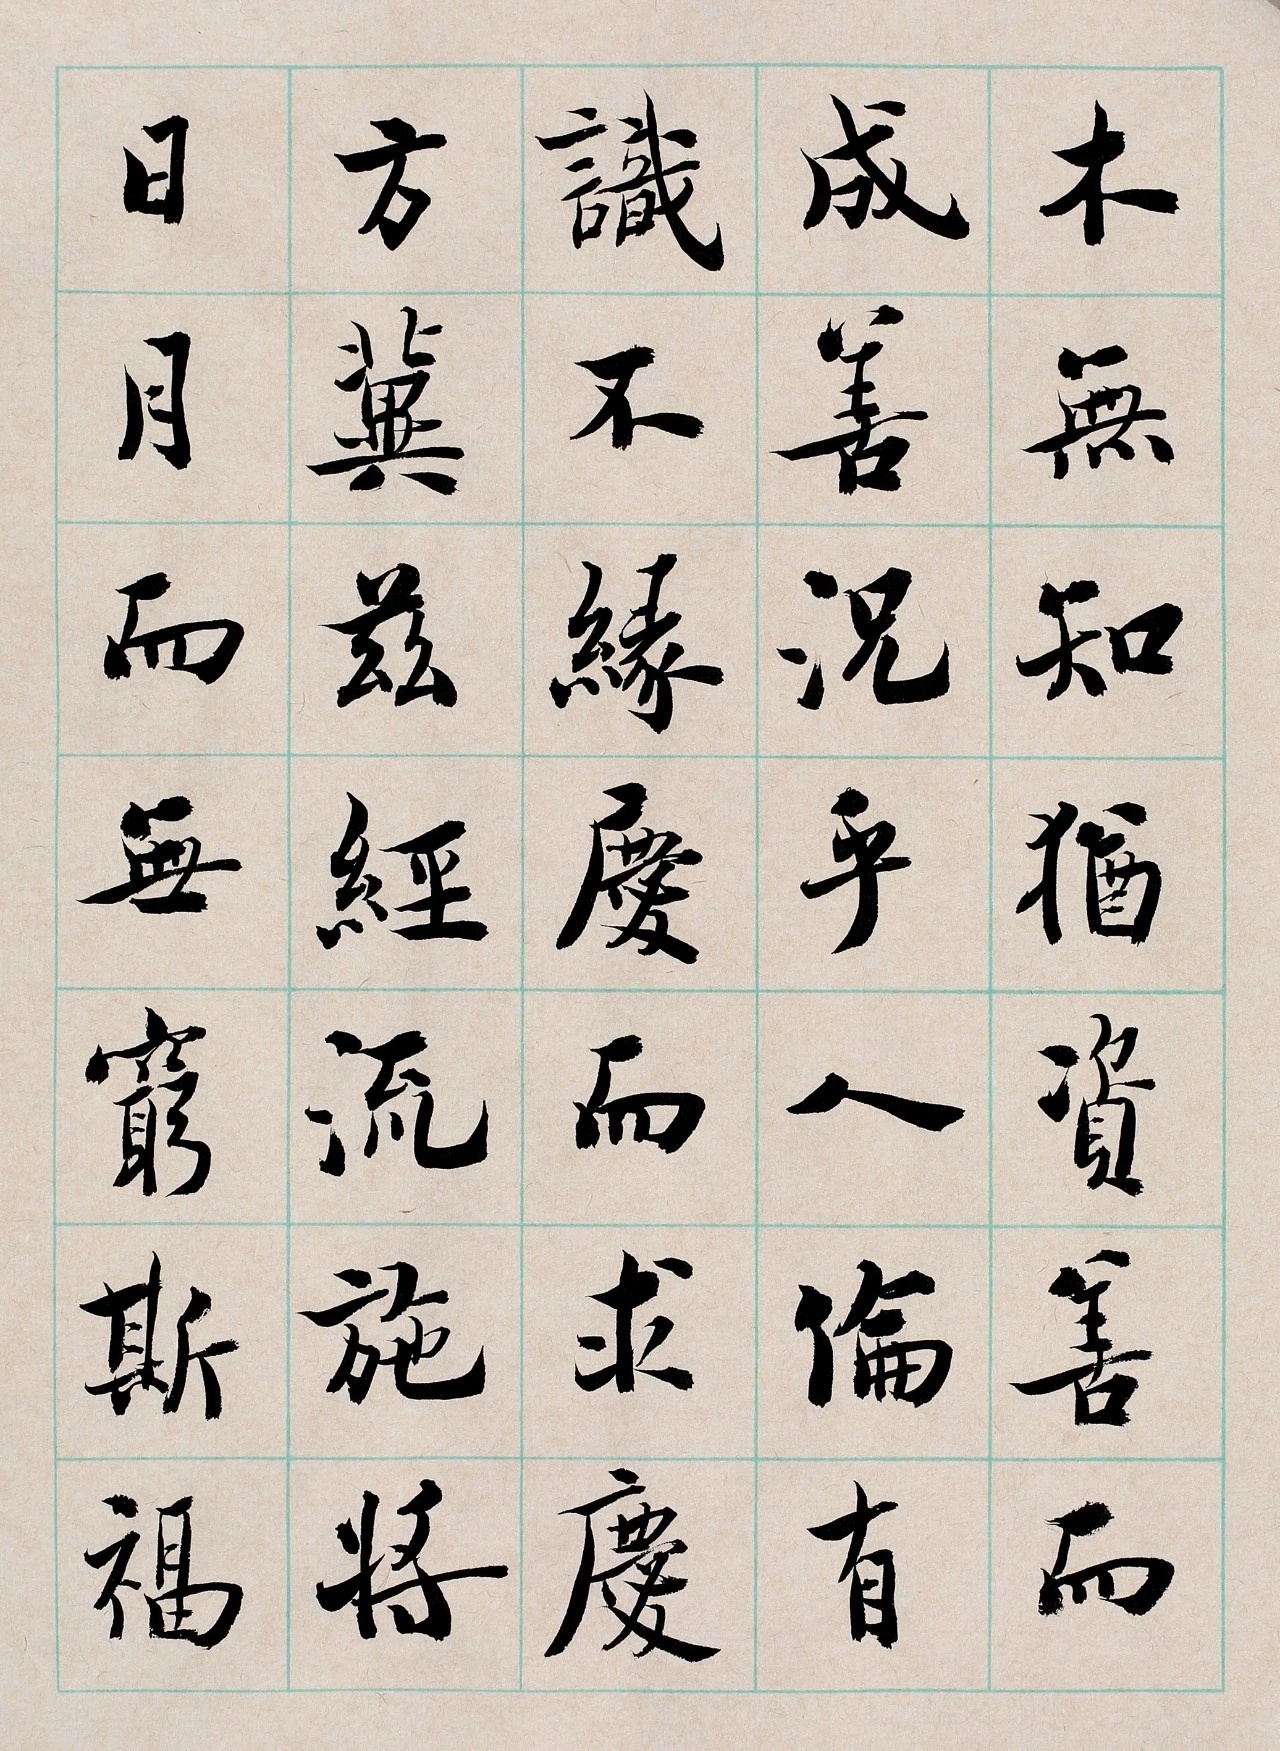 木無知猶資善而
成善況乎人倫有
識不緣慶而求慶
方冀茲經流施將
日月而無窮斯福